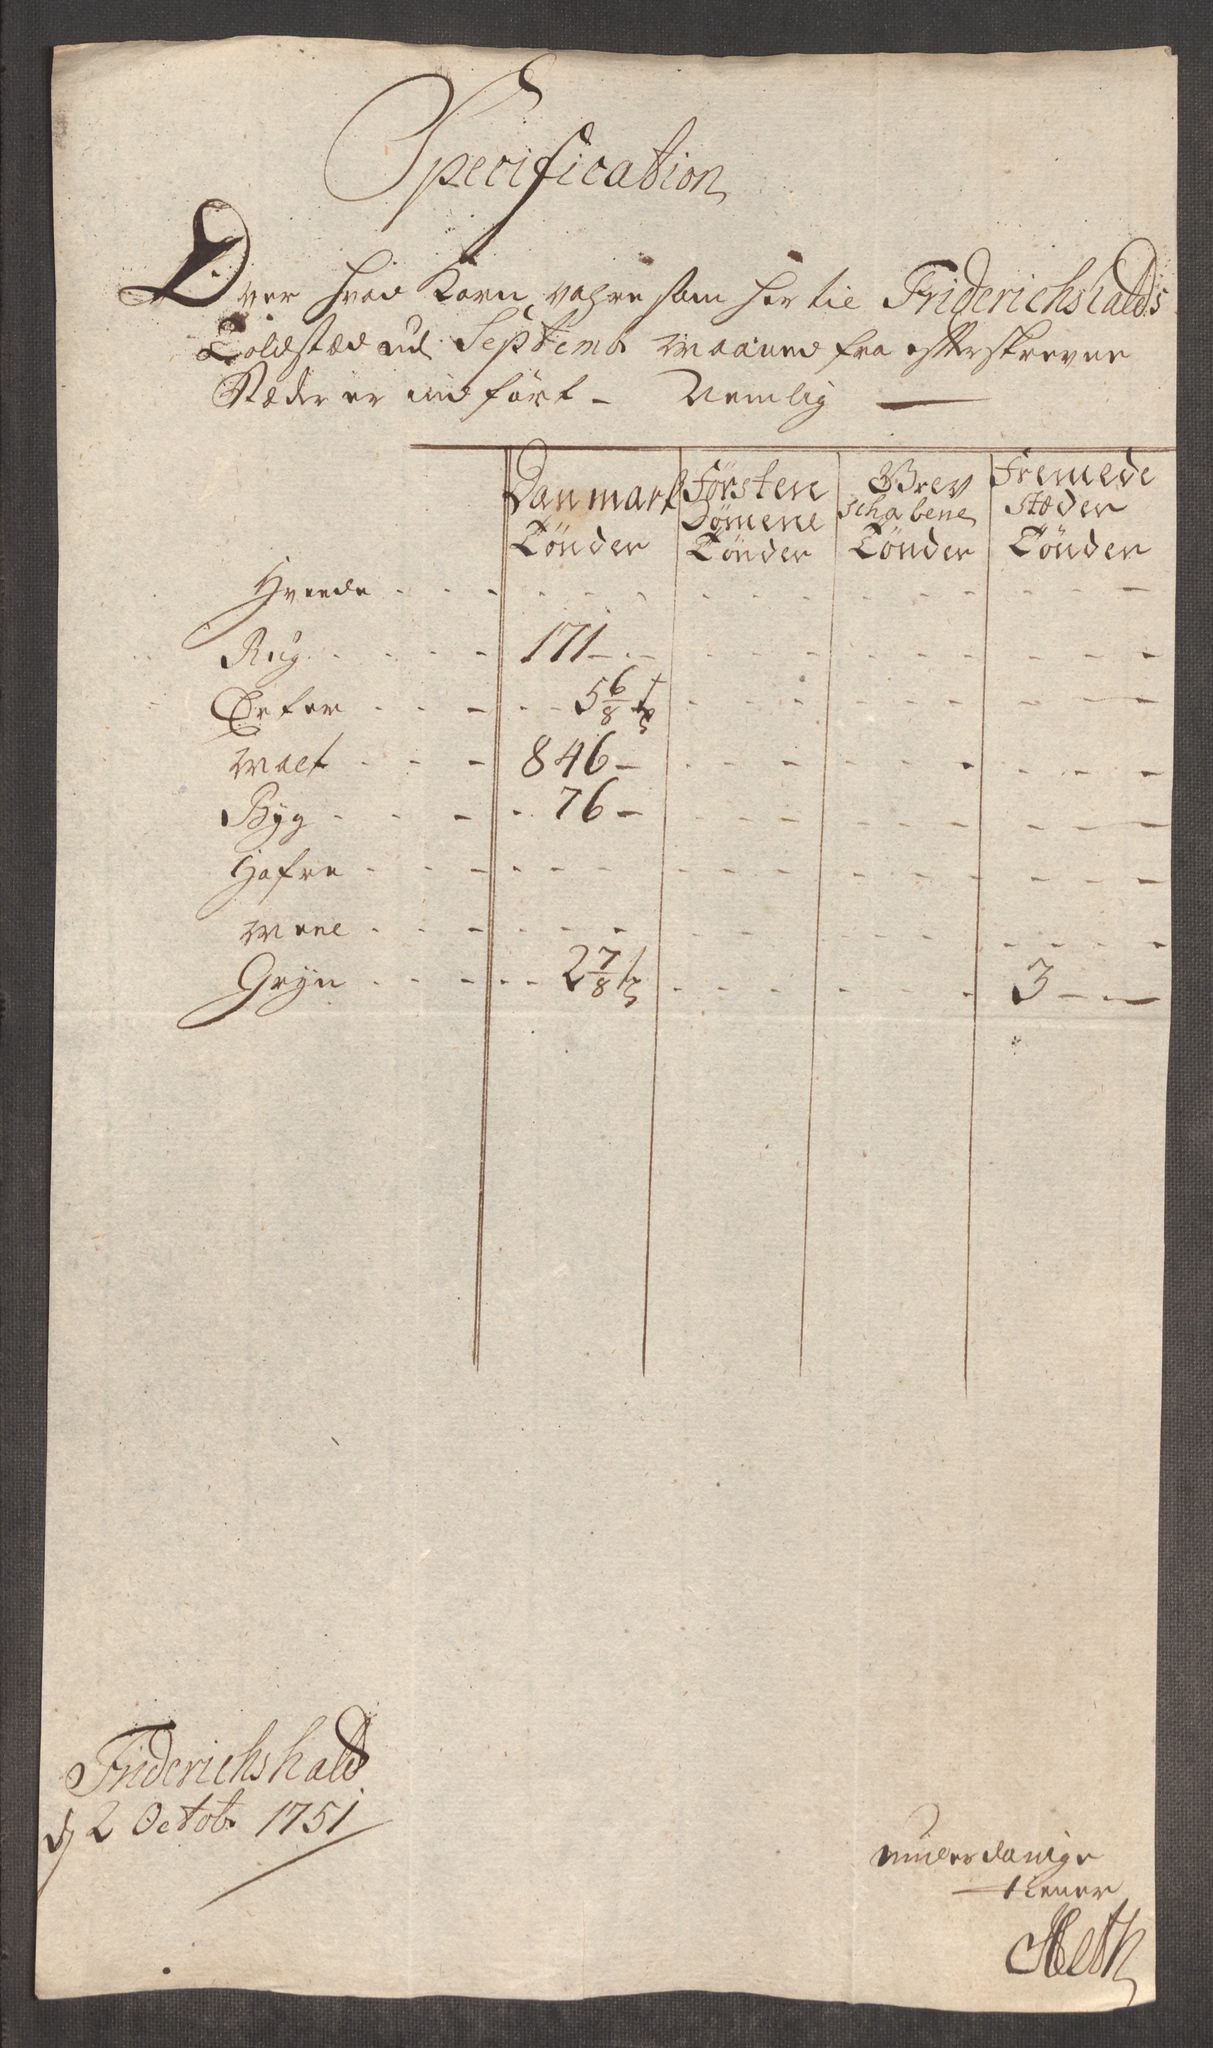 Specification
Over hvad Korn vahre som her til Friderichshalds
Toldstæd udj Septembr Maaned fra efterskrevne
Stæder er indført - Nemlig
Danmark Tönder | Førsten Dömene Tönder | Grev schabene Tönder | Fremede stæder Tönder
Hveede - - - - - -
Rug - - 171 - - - -
Erter - - 5 6/8 - - -
Malt - - 846 - - - -
Byg - - 76 - - - -
Hafre - - - - - -
Meel - - - - - -
Gryn - - 2 7/8 - - 3 - -
Friderichshald
d 2 Octobr 1751
underdanige
tiener